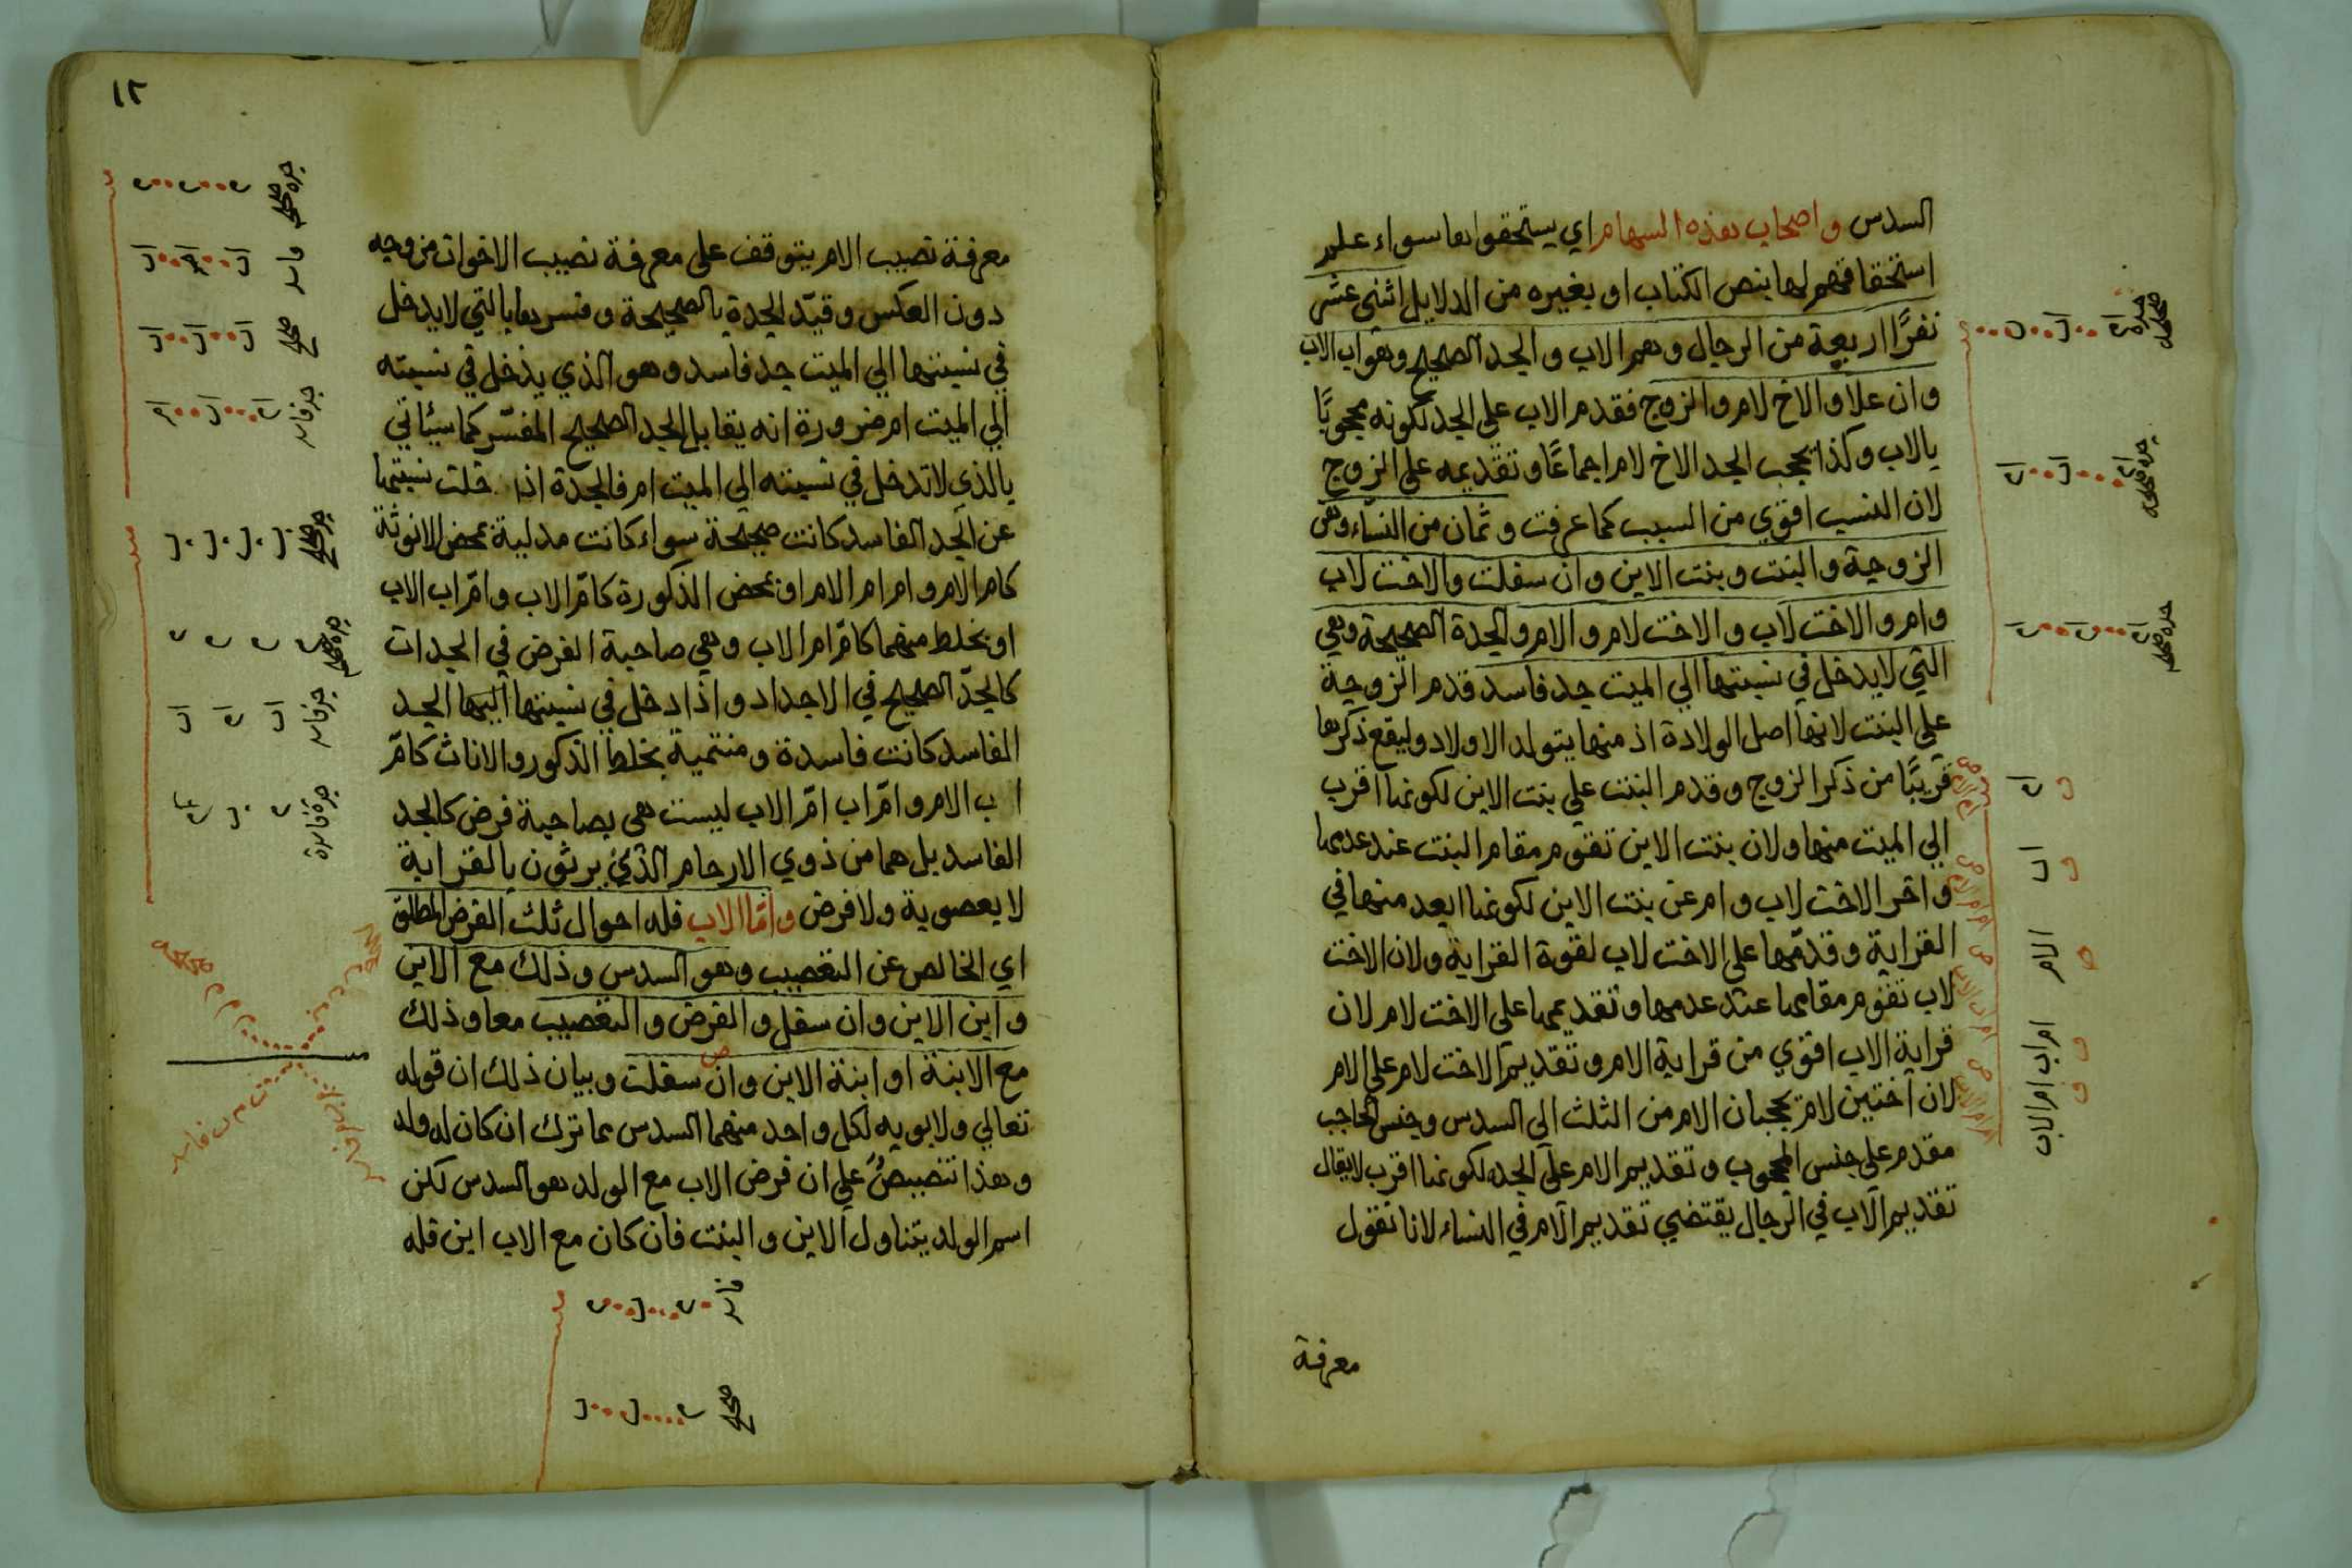 السدس واصحاب هذه السهام اي يستحقوانها سواء علم
استحقاقهم لها بنص الكتاب او بغيره من الدلايل اثنى عشر
نفرًا اربعة من الرجال وهم الاب والجد الصحيح وهواب الاب
وان علا والاخ لام والزوج فقدم الاب على الجد لكونه محجوبًا
بالاب وكذا يحجب الجد الاخ لام اجماعًا وتقديمه على الزوج
لان النسب اقوي من السبب كما عرفت وثمان من النساء وهن
الزوجة والبنت وبنت الابن وان سفلت والاخت لاب
وام والاخت لاب والاخت لام والام والجدة الصحيحة وهي
التي لايدخل في نسبتها الي الميت جد فاسد قدم الزوجة
علي البنت لانها اصل الولادة اذ منها يتولد الاولاد وليقع ذكرها
قريبًا من ذكر الزوج وقدم البنت علي بنت الابن لكونها اقرب
الي الميت منها ولان بنت الابن تقوم مقام البنت عند عدمها
واخر الاخت لاب وام عن بنت الابن لكونها ابعد منها في
القرابة وقدمها علي الاخت لاب لقوة القرابة ولان الاخت
لاب تقوم مقامها عند عدمها وتقديمها علي الاخت لام لان
قرابة الاب اقوي من قرابة الام وتقديم الاخت لام علي الام
لان اختين لام يحجبان الام من الثلث الي السدس وجنس الحاجب
مقدم علي جنس المحجوب وتقديم الام علي الجده لكونها اقرب لايقال
تقديم الاب في الرجال يقتضي تقديم الام في النساء لانا نقول
معرفة
جدة صحيحة
جدة صحيحة
جدة صحيحة
اب
الام
ام اب ام الاب
١٢
معرفة نصيب الام يتوقف علي معرفة نصيب الاخوات من وجه
دون العكس وقيّد الجدة بالصحيحة وفسرها بالتي لايدخل
في نسبتها الي الميت جد فاسد وهو الذي يدخل في نسبته
الي الميت ام ضرورة انه يقابل الجد الصحيح المفسّر كما سيئاتي
بالذي لاتدخل في نسبته الي الميت ام فالجدة اذا خلت نسبتها
عن الجد الفاسد كانت صحيحة سواء كانت مدلية بمحض الانوثة
كام الام وام ام الام او بمحض الذكورة كامّ الاب وامّ اب الاب
او بخلط منهما كامّ ام الاب وهي صاحبة الفرض في الجدات
كالجدّ الصحيح في الاجداد واذا دخل في نسبتها اليها الجد
الفاسد كانت فاسدة ومنتمية بخلط الذكور والاناث كامّ
اب الام وامّ اب امّ الاب ليست هي بصاحبة فرض كالجد
الفاسد بل هما من ذوي الارحام الذي يرثون بالقرابة
لا بعصوبة ولا فرض وامّا الاب فله احوال ثلث الفرض المطلق
اي الخالص عن التعصيب وهو السدس وذلك مع الابن
وابن الابن وان سفل والفرض والتعصيب معا وذلك
مع الابنة او ابنة الابن وان سفلت وبيان ذلك ان قوله
تعالي ولابويه لكل واحد منهما السدس مما ترك ان كان له ولد
وهذا تنصيصٌ علي ان فرض الاب مع الولد هو السدس لكن
اسم الولد يتناول الابن والبنت فان كان مع الاب ابن فله
جدة صحيحة
فاسد
صحيح
جد فاسد
جدة صحيحة
جدة صحيحة
جد فاسد
جدة فاسدة
فاسد
صحيح